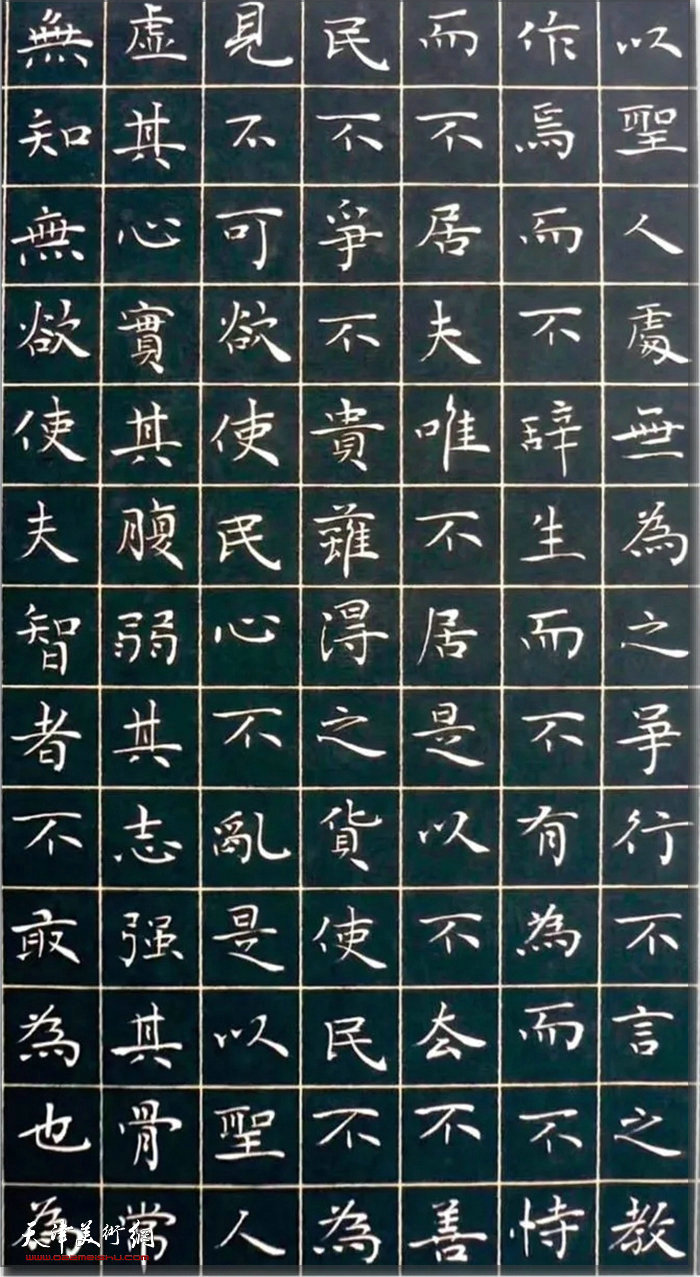 以聖人處無為之事行不言之教
作焉而不辞生而不有為而不恃
而不居夫唯不居是以不去不善
民不爭不貴難得之貨使民不為
見不可欲使民心不亂是以聖人
虛其心實其腹弱其志强其骨常
無知無欲使夫智者不敢為也為
天津美術網